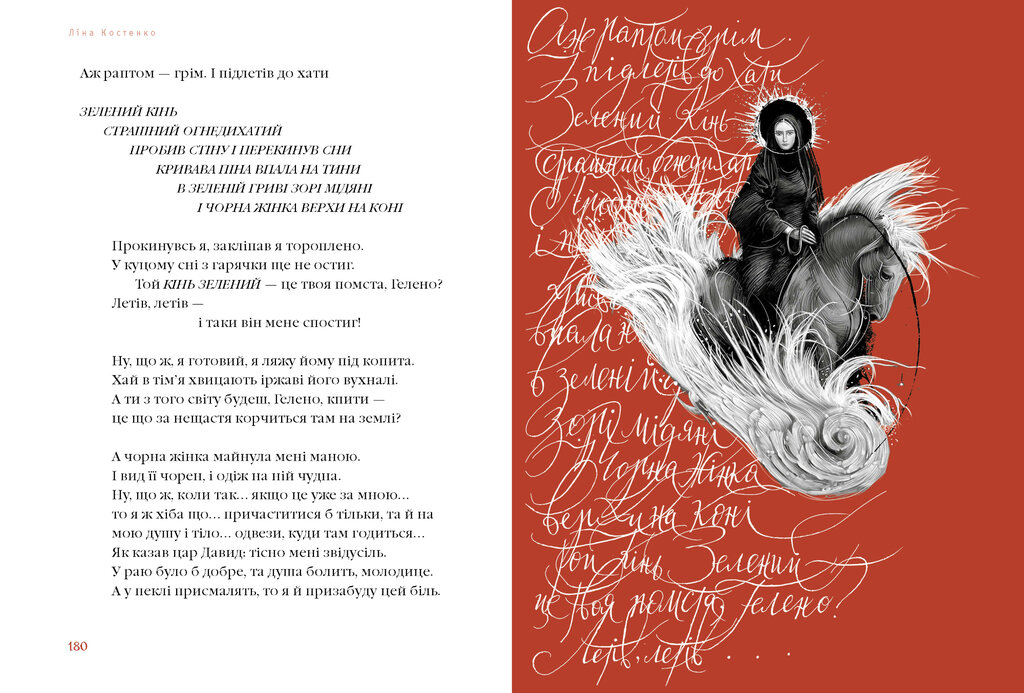 Ліна Костенко
Аж раптом — грім. І підлетів до хати
ЗЕЛЕНИЙ КІНЬ
СТРАШНИЙ ОГНЕДИХАТИЙ
ПРОБИВ СТІНУ І ПЕРЕКИНУВ СНИ
КРИВАВА ПІНА ВПАЛА НА ТИНИ
В ЗЕЛЕНІЙ ГРИВІ ЗОРІ МІДЯНІ
І ЧОРНА ЖІНКА ВЕРХИ НА КОНІ
Прокинувсь я, закліпав я тороплено.
У куцому сні з гарячки ще не остиг.
Той КІНЬ ЗЕЛЕНИЙ — це твоя помста, Гелено?
Летів, летів —
і таки він мене спостиг!
Ну, що ж, я готовий, я ляжу йому під копита.
Хай в тім’я хвицають іржаві його вухналі.
А ти з того світу будеш, Гелено, кпити —
це що за нещастя корчиться там на землі?
А чорна жінка майнула мені маною.
І вид її чорен, і одіж на ній чудна.
Ну, що ж, коли так... якщо це уже за мною...
то я ж хіба що... причаститися б тільки, та й на
мою душу і тіло... одвези, куди там годиться...
Як казав цар Давид: тісно мені звідусіль.
У раю було б добре, та душа болить, молодице.
А у пеклі присмалять, то я й призабуду цей біль.
180
Аж раптом грім.
І підлетів до хати
Зелений Кінь
страшний огнедихат
і
впала н
в зеленій
Зорі мідяні
І Чорна Жінка
верхи на коні
Той Кінь Зелений
це Твоя помста, Гелено?
Летів, летів . . .